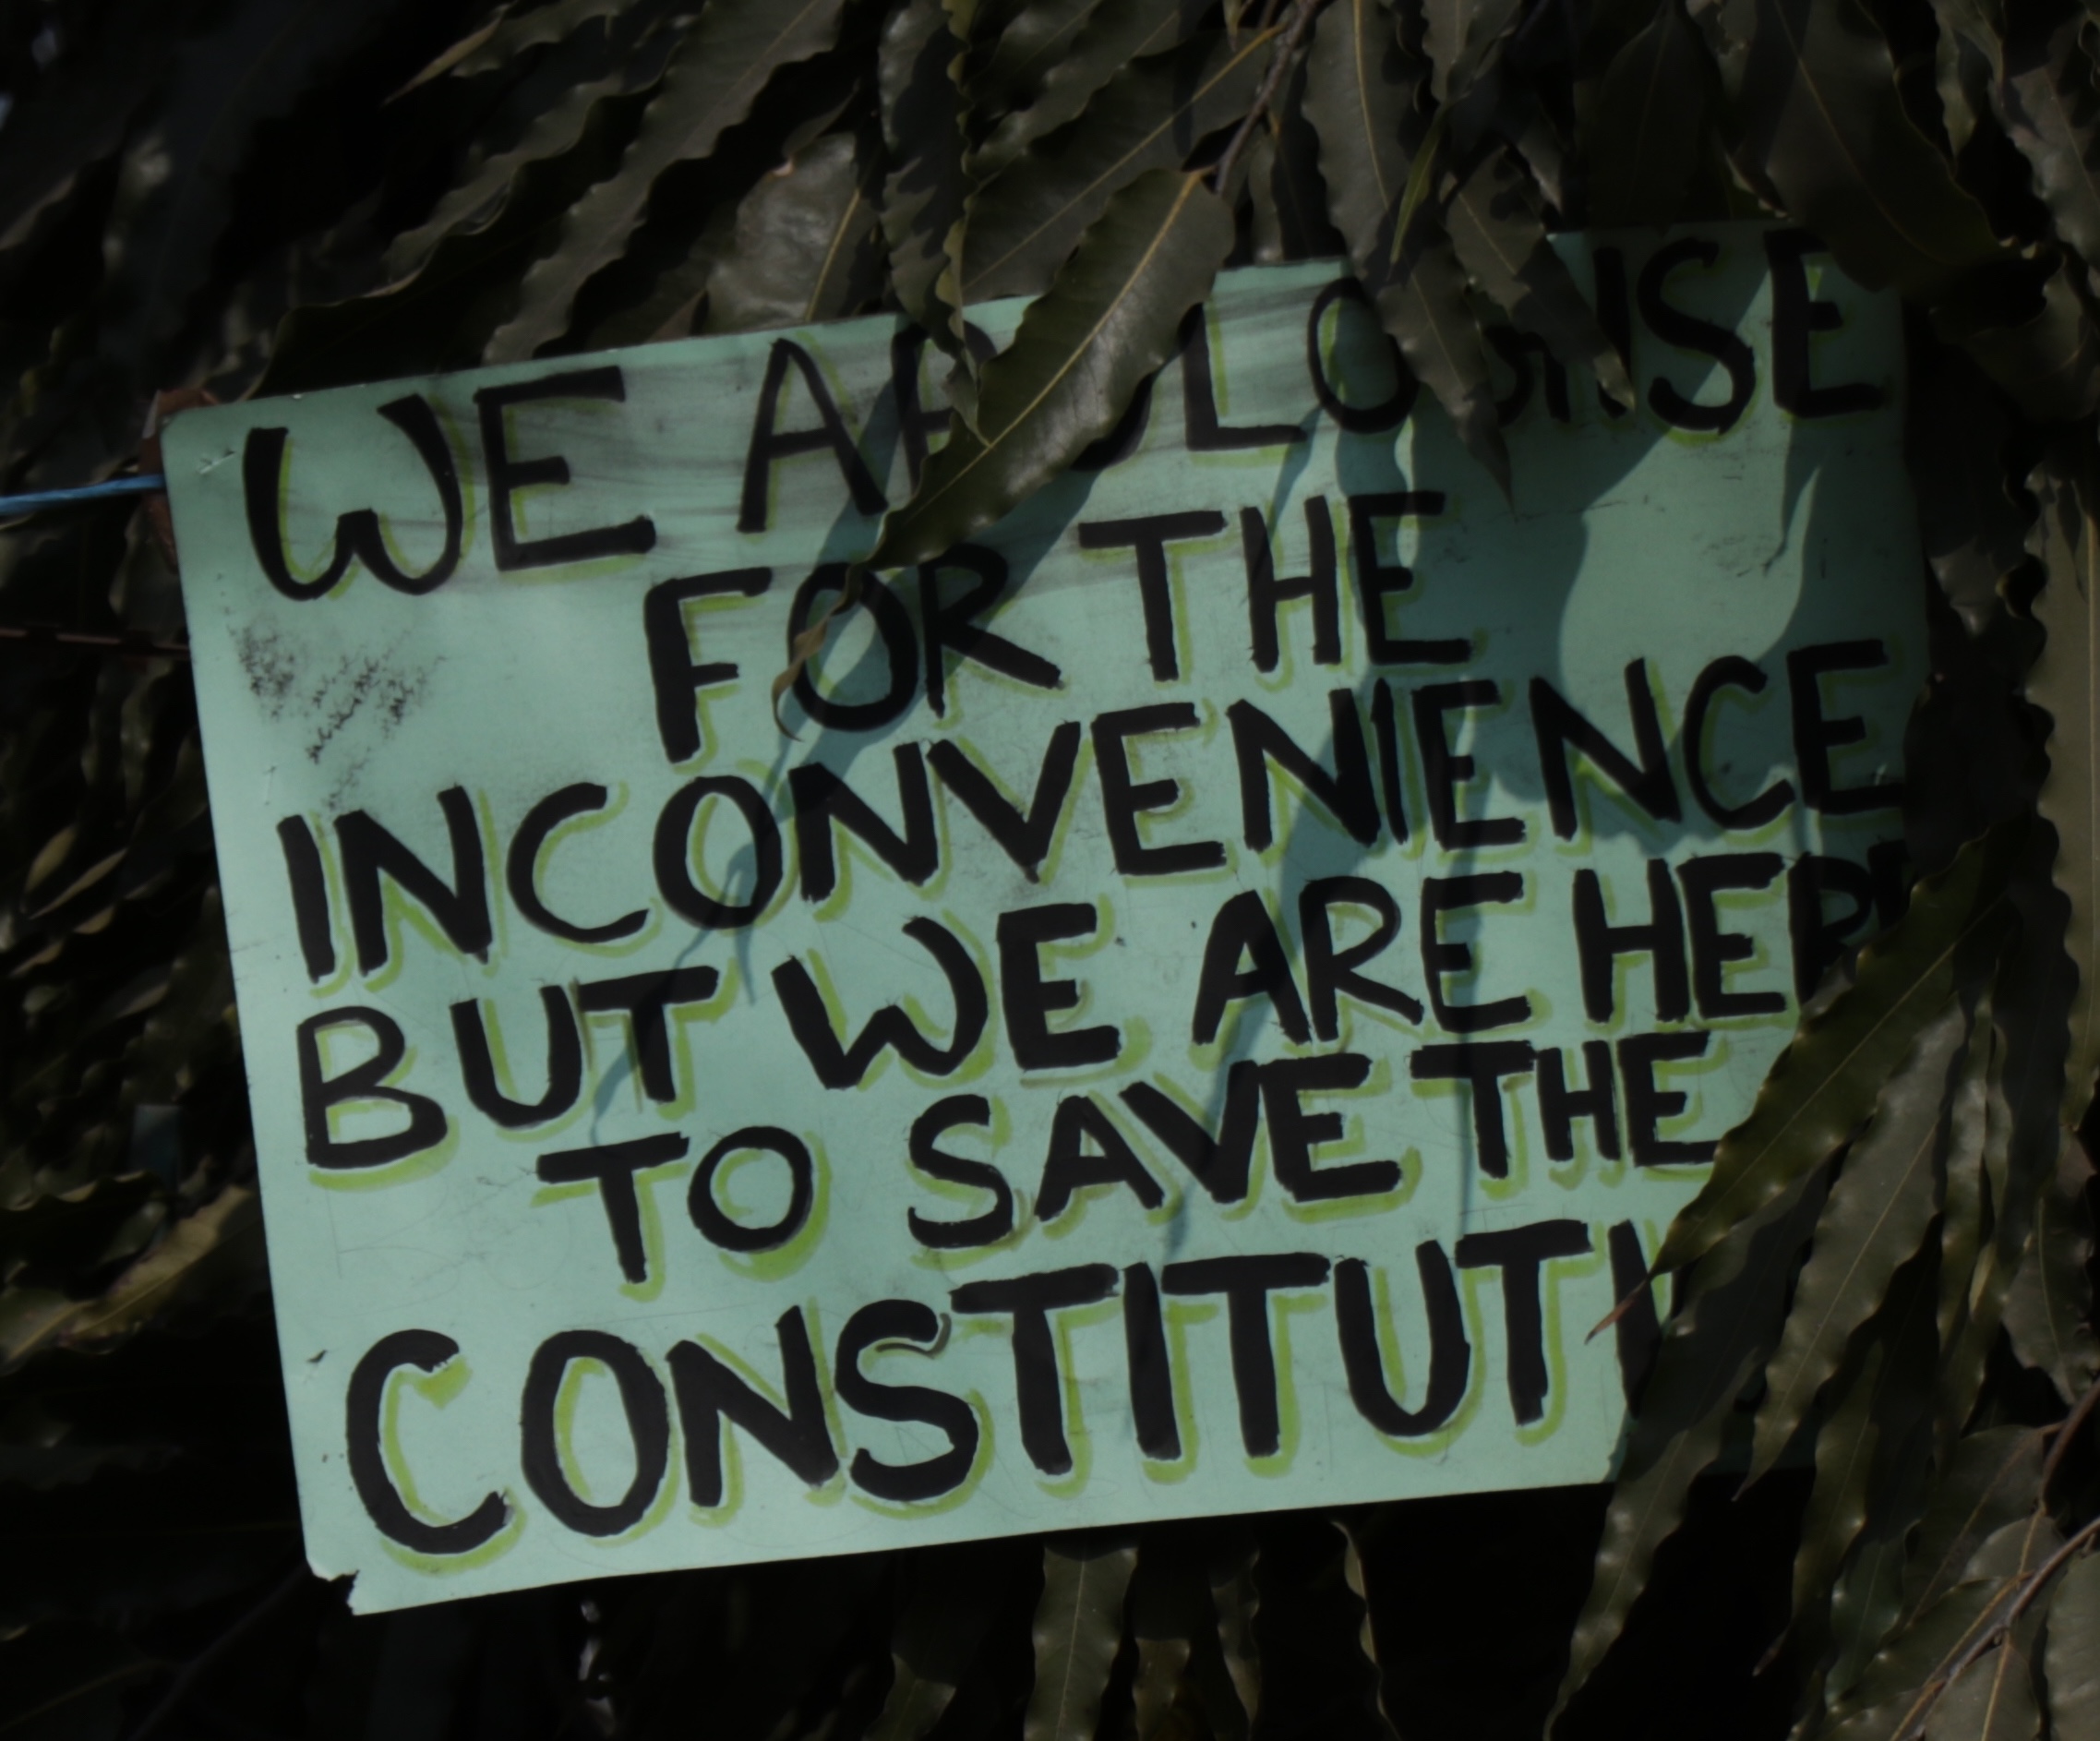 WE APOLOGISE
FOR THE
INCONVENIENCE
BUT WE ARE HERE
TO SAVE THE
CONSTITUTI